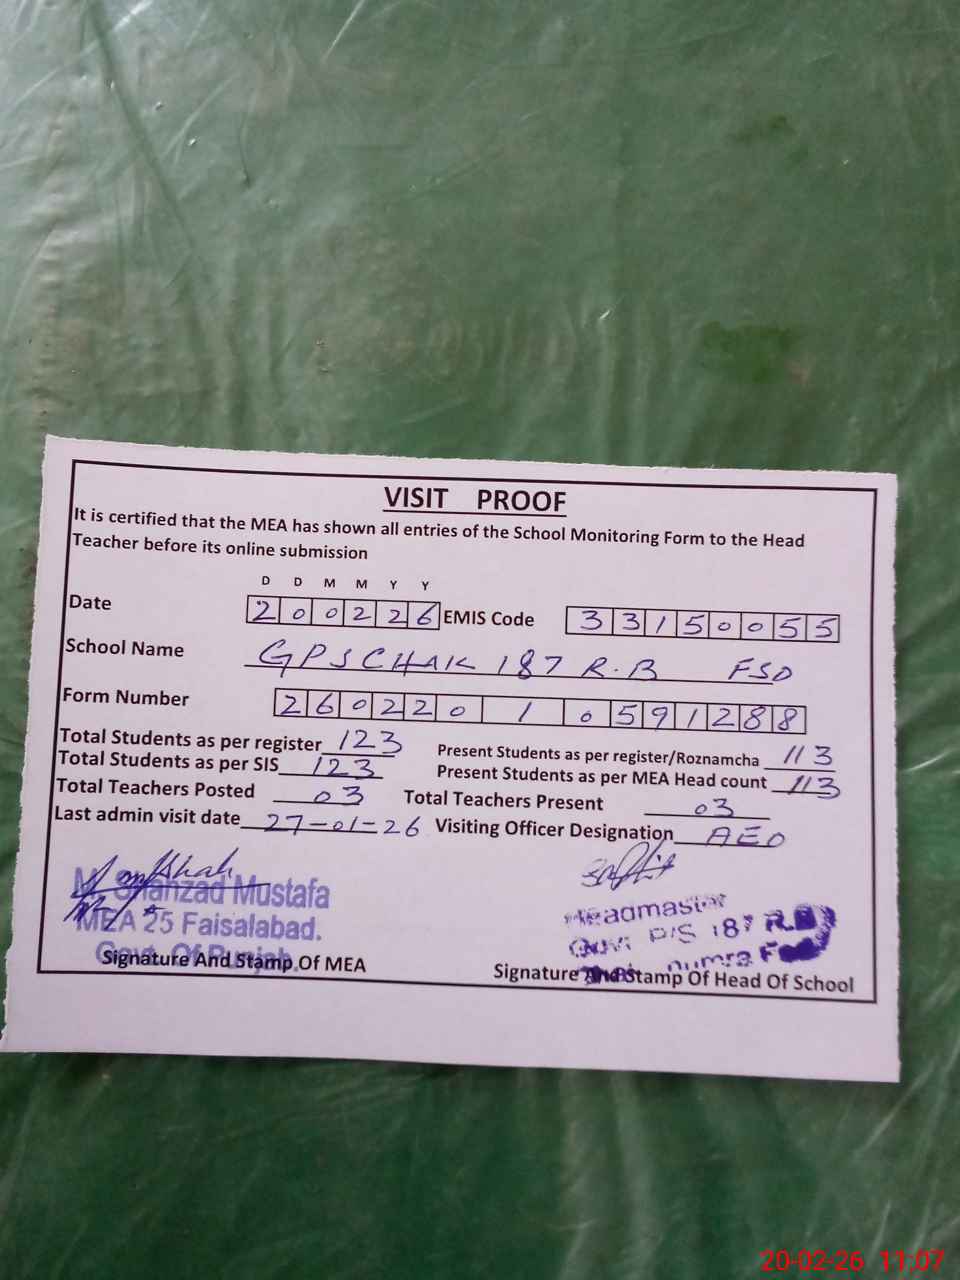 VISIT PROOF
It is certified that the MEA has shown all entries of the School Monitoring Form to the Head
Teacher before its online submission
D D M M Y Y
Date 200226 EMIS Code 33150055
School Name GPSCHAK 187 R.B FSD
Form Number 260220 1 0591288
Total Students as per register 123 Present Students as per register/Roznamcha 113
Total Students as per SIS 123 Present Students as per MEA Head count 113
Total Teachers Posted 03 Total Teachers Present 03
Last admin visit date 27-01-26 Visiting Officer Designation AEO
M. Shahzad Mustafa
MEA 25 Faisalabad.
Govt. Of Punjab.
Headmaster
Govt P/S 187 R.B
Signature And Stamp Of MEA
Signature And Stamp Of Head Of School
20-02-26 11:07